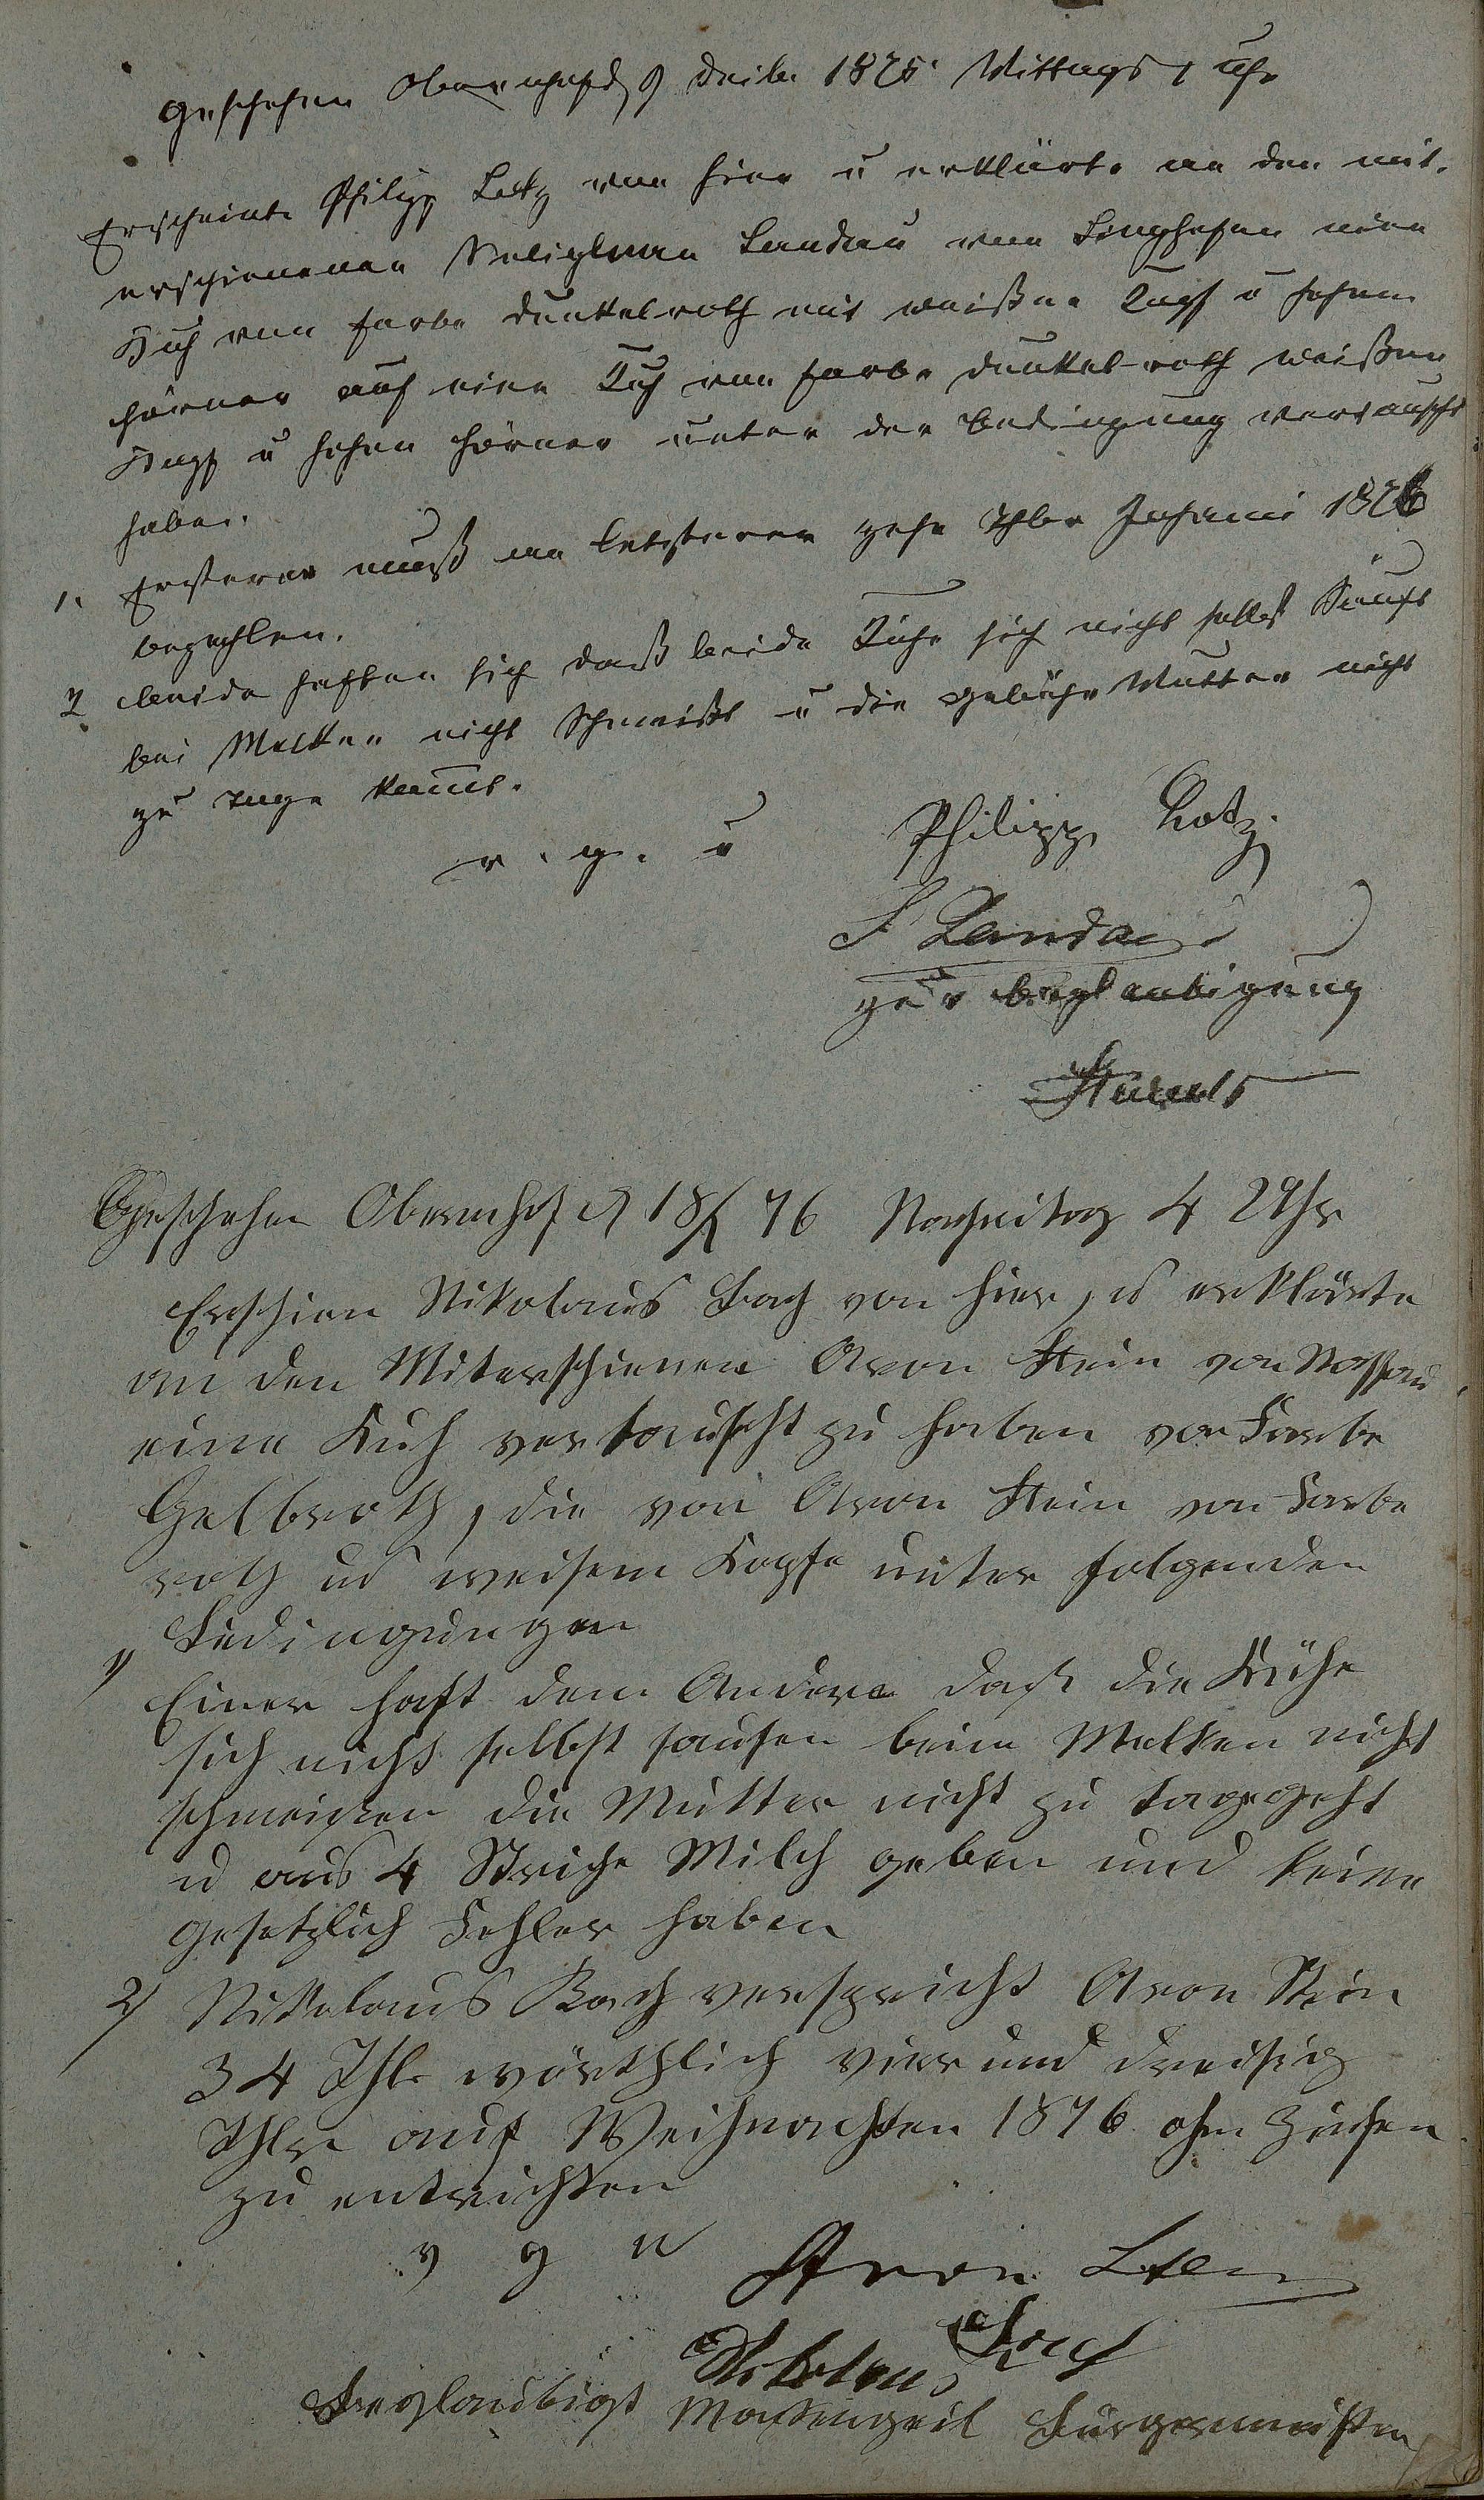 Geschehen Obernhof d 9 Dezbr 1875 Mittags 1 Uhr
Erscheint Philipp Lotz von hier u erklärte an den mit-
erschienenen Seligman Landau von Singhofen eine
Kuh von Farbe dunkelroth mit weißen Kopf u hohen
Hörner auf eine Kuh von Farbe dunkel-roth weißen
Kopf u hohen Hörner unter der Bedingung vertauscht
haben.
1. Ersterer muß an Letzteren zehn Thlr Johanni 1876
bezahlen.
2 Beide haften sich daß beide Kühe sich nicht selbst Säuft
bei Melken nicht Schmeißt u die gebähr Mutter nicht
zu tage kommt.
v. g. u
Philipp Lotz.
S Landau
zur beglaubigung
Geschehen Obernhof d 18/1 76 Nachmitag 4 Uhr
Erschien Nikolaus Bach von hier, u erklärte
an den Miterschienen Aron Stein von Nassau
eine Kuh vertauscht zu haben von Farbe
Gelbroth, die von Aron Stein von Farbe
roth ud weisem Kopfe unter folgenden
Bedingungen
1) Einer haft dem Andern daß die Kühe
sich nicht selbst saufen beim Melken nicht
schmeißen die Mutter nicht zu tage geht
u aus 4 Striche Milch geben und keine
gesetzlich Fehler haben
2) Nikolaus Bach verspricht Aron Stein
34 Thlr wörthlich vier und dreisig
Thlr auf Weihnachten 1876 ohn Zinsen
zu entrichten
v g u Aron Stein
Nikolaus Bach
Beglaubigt Massengeil Bürgermeister